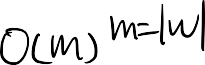 O(m) m=|w|